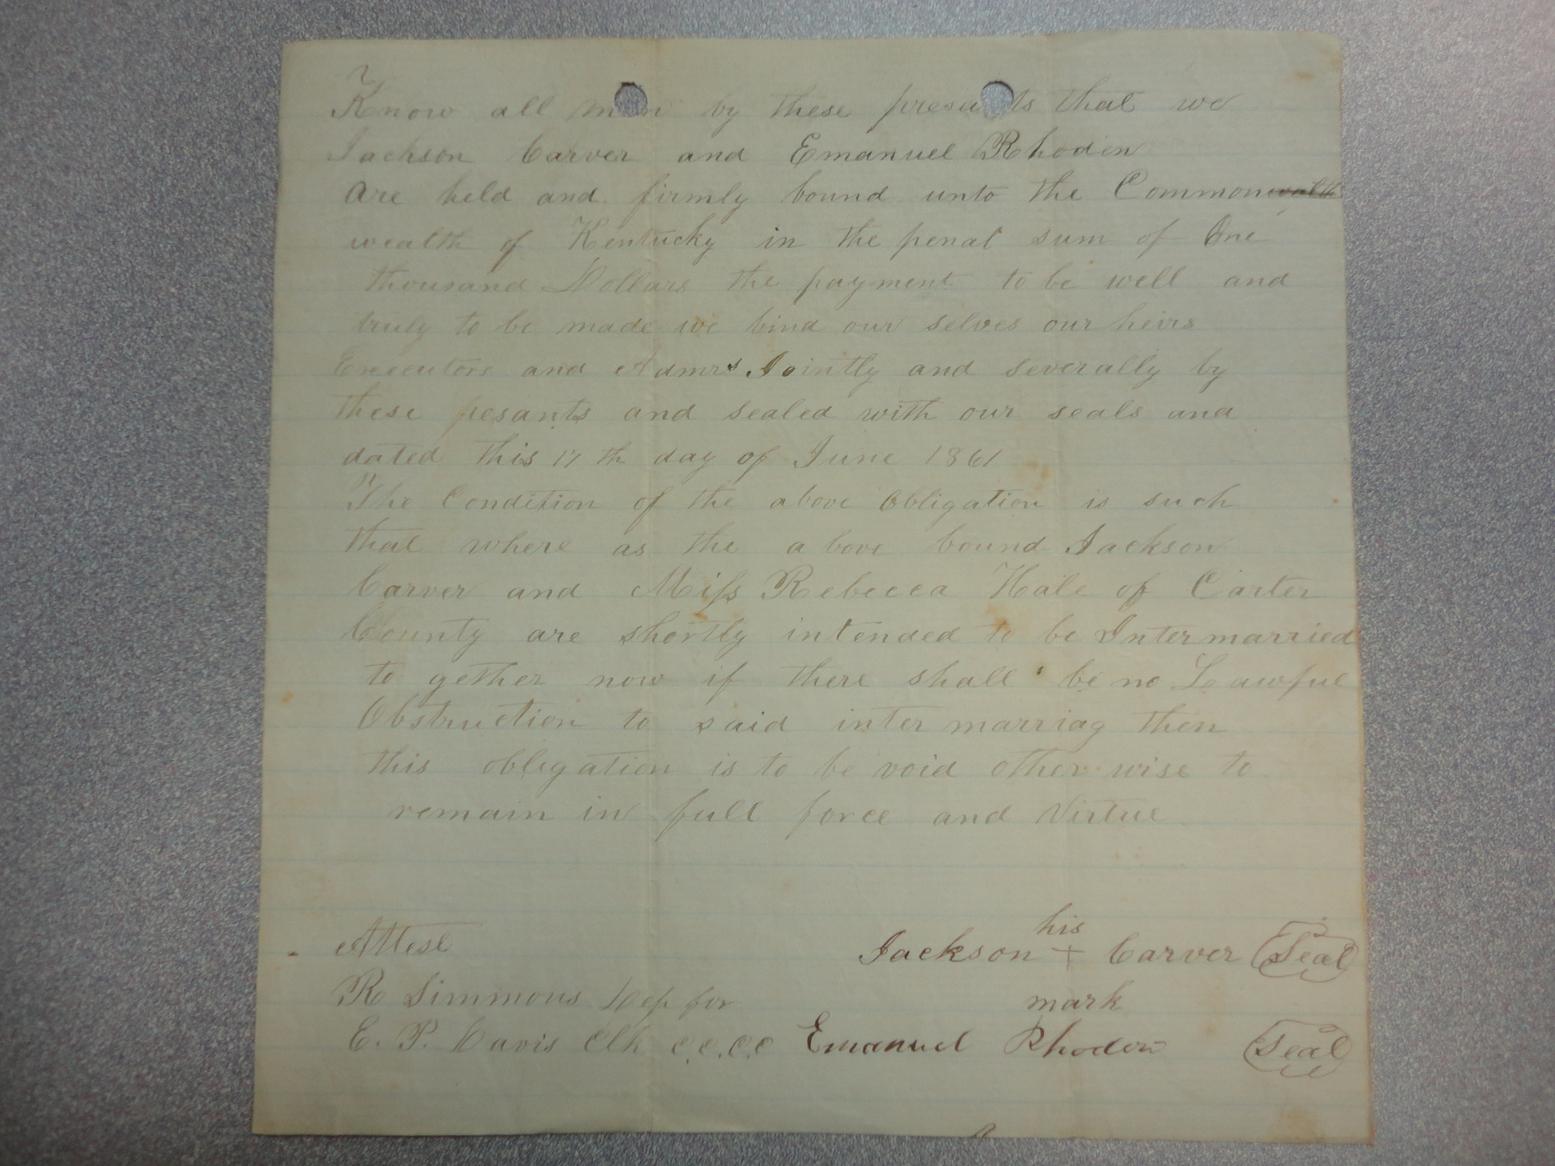 Know all men by these presents that we
Jackson Carver and Emanuel Rhoden
are held and firmly bound unto the Commonwealth
wealth of Kentucky in the penal sum of One
thousand Dollars the payment to be well and
truly to be made we bind our selves our heirs
Executors and Admrs Jointly and severally by
these pesants and sealed with our seals and
dated this 17th day of June 1861
The Condition of the above Obligation is such
that where as the a bove bound Jackson
Carver and Miss Rebecca Hale of Carter
County are shortly intended to be Intermarried
to gether now if there shall be no Lawful
Obstruction to said inter marriag then
this obligation is to be void other wise to
remain in full force and Virtue
his
Attest Jackson + Carver Seal
R Simmons Dep for mark
E. P. Davis Clk C.C.C.C Emanuel Rhoden Seal